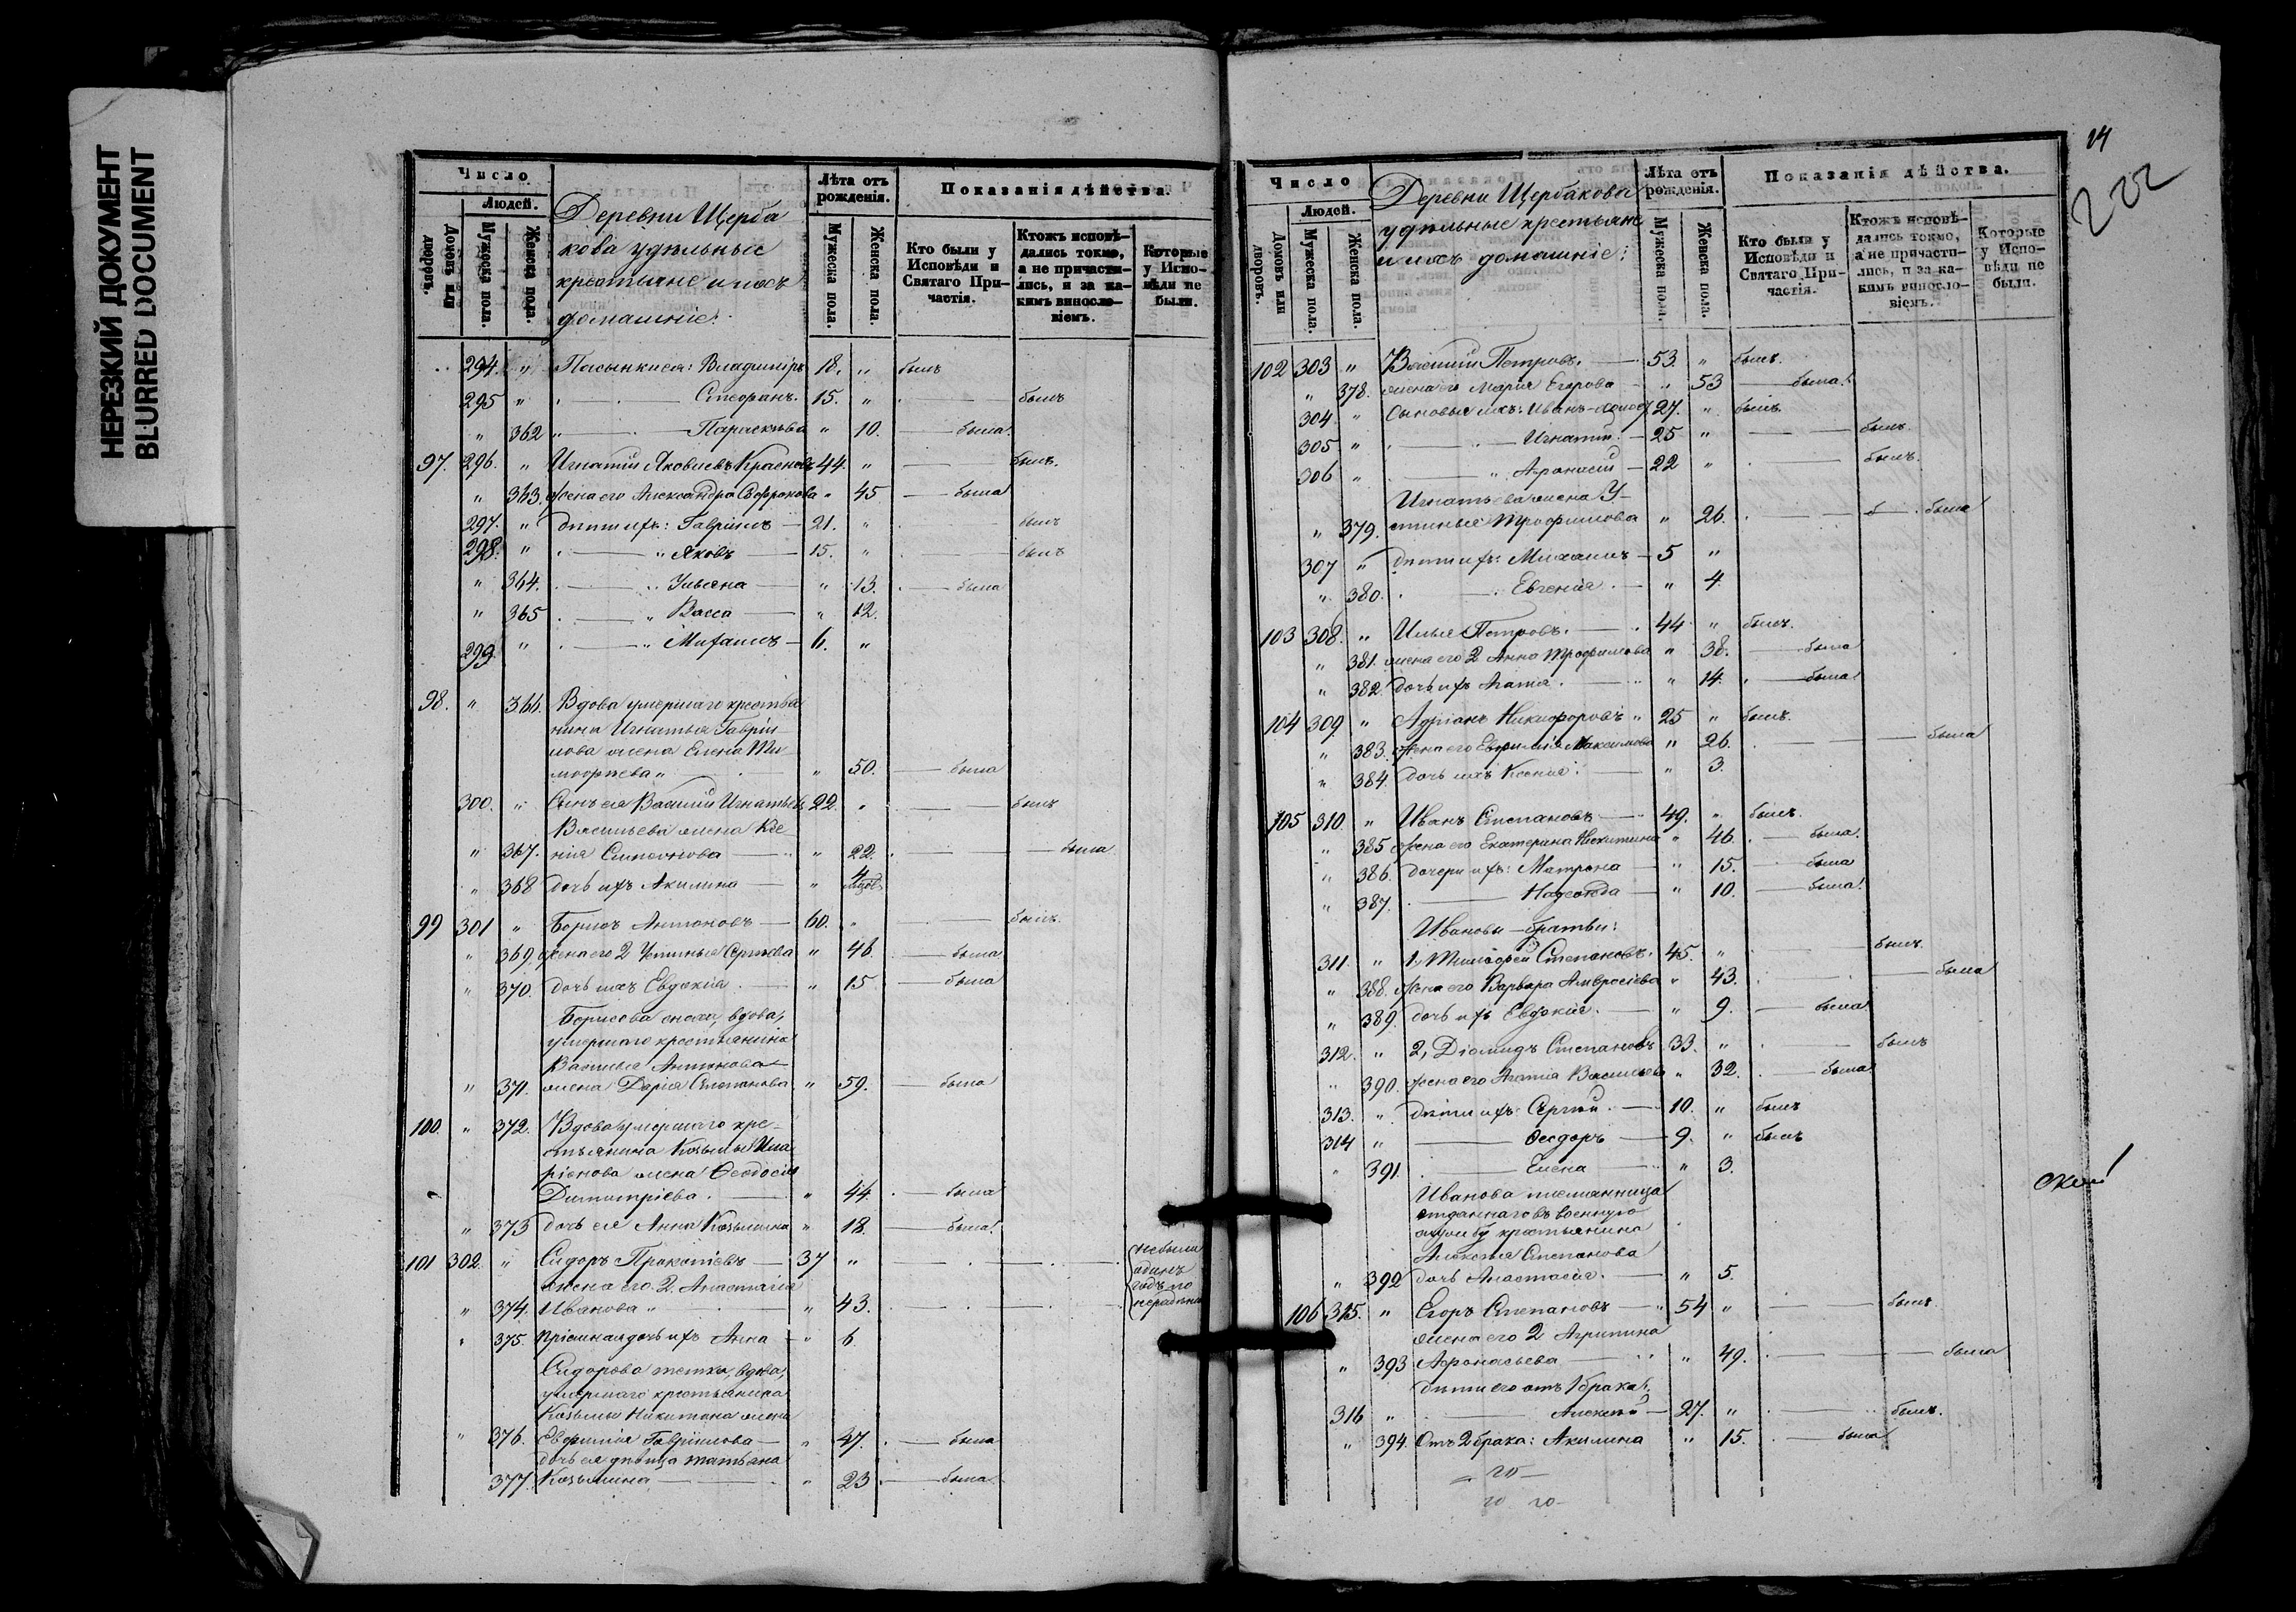 НЕРЕЗКИЙ ДОКУМЕНТ
BLURRED DOCUMENT
Число
Людей.
Домовъ или дворовъ.
Мужеска пола.
Женска пола.
Деревни Щерба
кова удѣльные
крестьяне и ихъ
домашніе:
Лѣта отъ рожденія.
Мужеска пола.
Женска пола.
Показанія дѣйства.
Кто были у Исповѣди и Святаго Причастія.
Ктожъ исповѣдались токмо, а не причастились, и за какимъ винословіемъ.
Которые у Исповѣди не были.
294. " Пасынки ея: Владиміръ 18. " былъ
295 " Стефанъ. 15. " былъ
" 362 Параскева " 10. была
97. 296. " Игнатій Яковлевъ Красновъ 44. " былъ.
" 363. жена его Александра Софронова " 45 была
297. " дѣти ихъ: Гавріилъ 21. " былъ
298. " " Яковъ 15. " былъ
" 364. " Ульяна " 13. была
" 365 " Васса " 12.
299. " " Михаилъ 6. "
98. " 366. Вдова умершаго крестья
нина Игнатья Гаврі
лова жена Елена Ти
моѳеева " " 50. была
300. " Сынъ ея Василій Игнатьевъ 22. " былъ
Васильева жена Ксе
" 367. нія Симеонова " 22. была
" 368 дочь ихъ Акилина " 4 мѣс.
99 301 " Борисъ Антоновъ 60. " былъ.
" 369. жена его 2 Устинья Сергѣева " 46. была
" 370. дочь ихъ Евдокія. " 15 была
Борисова сноха, вдова,
умершаго крестьянина
Василья Антонова
" 371. жена Дарія Степанова " 59. была
100. " 372. Вдова умершаго кре-
стьянина Козьмы Ила
ріонова жена Ѳеодосія
Димитріева. " 44. была
" 373 дочь ея Анна Козьмина " 18. была
101 302. " Сидоръ Прокопіевъ 37 " небыли
жена его 2. Анастасія одинъ
годъ по
" 374. Иванова " " 43. нерадѣнію
" 375. пріемная дочь ихъ Анна " 6.
Сидорова тетка, вдова,
умершаго крестьянина
Козьмы Никитина жена
" 376. Евфимія Гавріилова " 47. была
дочь ея дѣвица Татьяна
377. Козьмина " 23 была
14
222
Число
Людей.
Домовъ или дворовъ.
Мужеска пола.
Женска пола.
Деревни Щербакова
удѣльные крестьяне
и ихъ домашніе:
Лѣта отъ рожденія.
Мужеска пола.
Женска пола.
Показанія дѣйства.
Кто были у Исповѣди и Святаго Причастія.
Ктожъ исповѣдались токмо, а не причастились, и за какимъ винословіемъ.
Которые у Исповѣди не были.
102 303 " Василій Петровъ. 53. " былъ.
" 378. жена его Марія Егорова " 53 была
304. " Сыновья ихъ: Иванъ-холост 27. " былъ.
305 " Игнатій. 25 " былъ.
306 " " Афанасій 22 " былъ.
Игнатьева жена У-
" 379. стинья Трофимова " 26. была
307 " дѣти ихъ: Михаилъ 5 "
" 380. Евгенія. " 4.
103 308. " Илья Петровъ. 44 " былъ.
" 381. жена его 2 Анна Трофимова " 38. была
" 382. дочь ихъ Агапія. " 14. была
104 309. " Адріанъ Никифоровъ " 25 " былъ.
" 383. жена его Евфимія Максимова " 26. была
" 384. дочь ихъ Ксенія. " 3.
105 310. " Иванъ Степановъ 49. " былъ.
" 385 жена его Екатерина Никитина " 46. была.
" 386. дочери ихъ: Матрона " 15. была
" 387. Надежда " 10. была
Ивановы братьи:
311. " 1, Тимоѳей Степановъ. 45. " былъ.
" 388. жена его Варвара Амвросіева " 43. была
" 389. дочь ихъ Евдокія. " 9. была
312. " 2, Діомидъ Степановъ 33. " былъ
" 390. жена его Агапія Васильева " 32. была
313. " дѣти ихъ: Сергѣй. 10. " былъ
314 " Ѳеодоръ 9. " былъ
" 391. Елена " 3.
Иванова племянница
отданнаго въ военную
службу крестьянина
Алексѣя Степанова
" 392 дочь Анастасія. " 5.
106 315. " Егоръ Степановъ 54 " былъ
жена его 2 Агрипина
" 393 Афонасьева " 49. была
дѣти его отъ 1 брака:
316 " Алексѣй 27. " былъ.
" 394. Отъ 2 брака: Акилина " 15. была